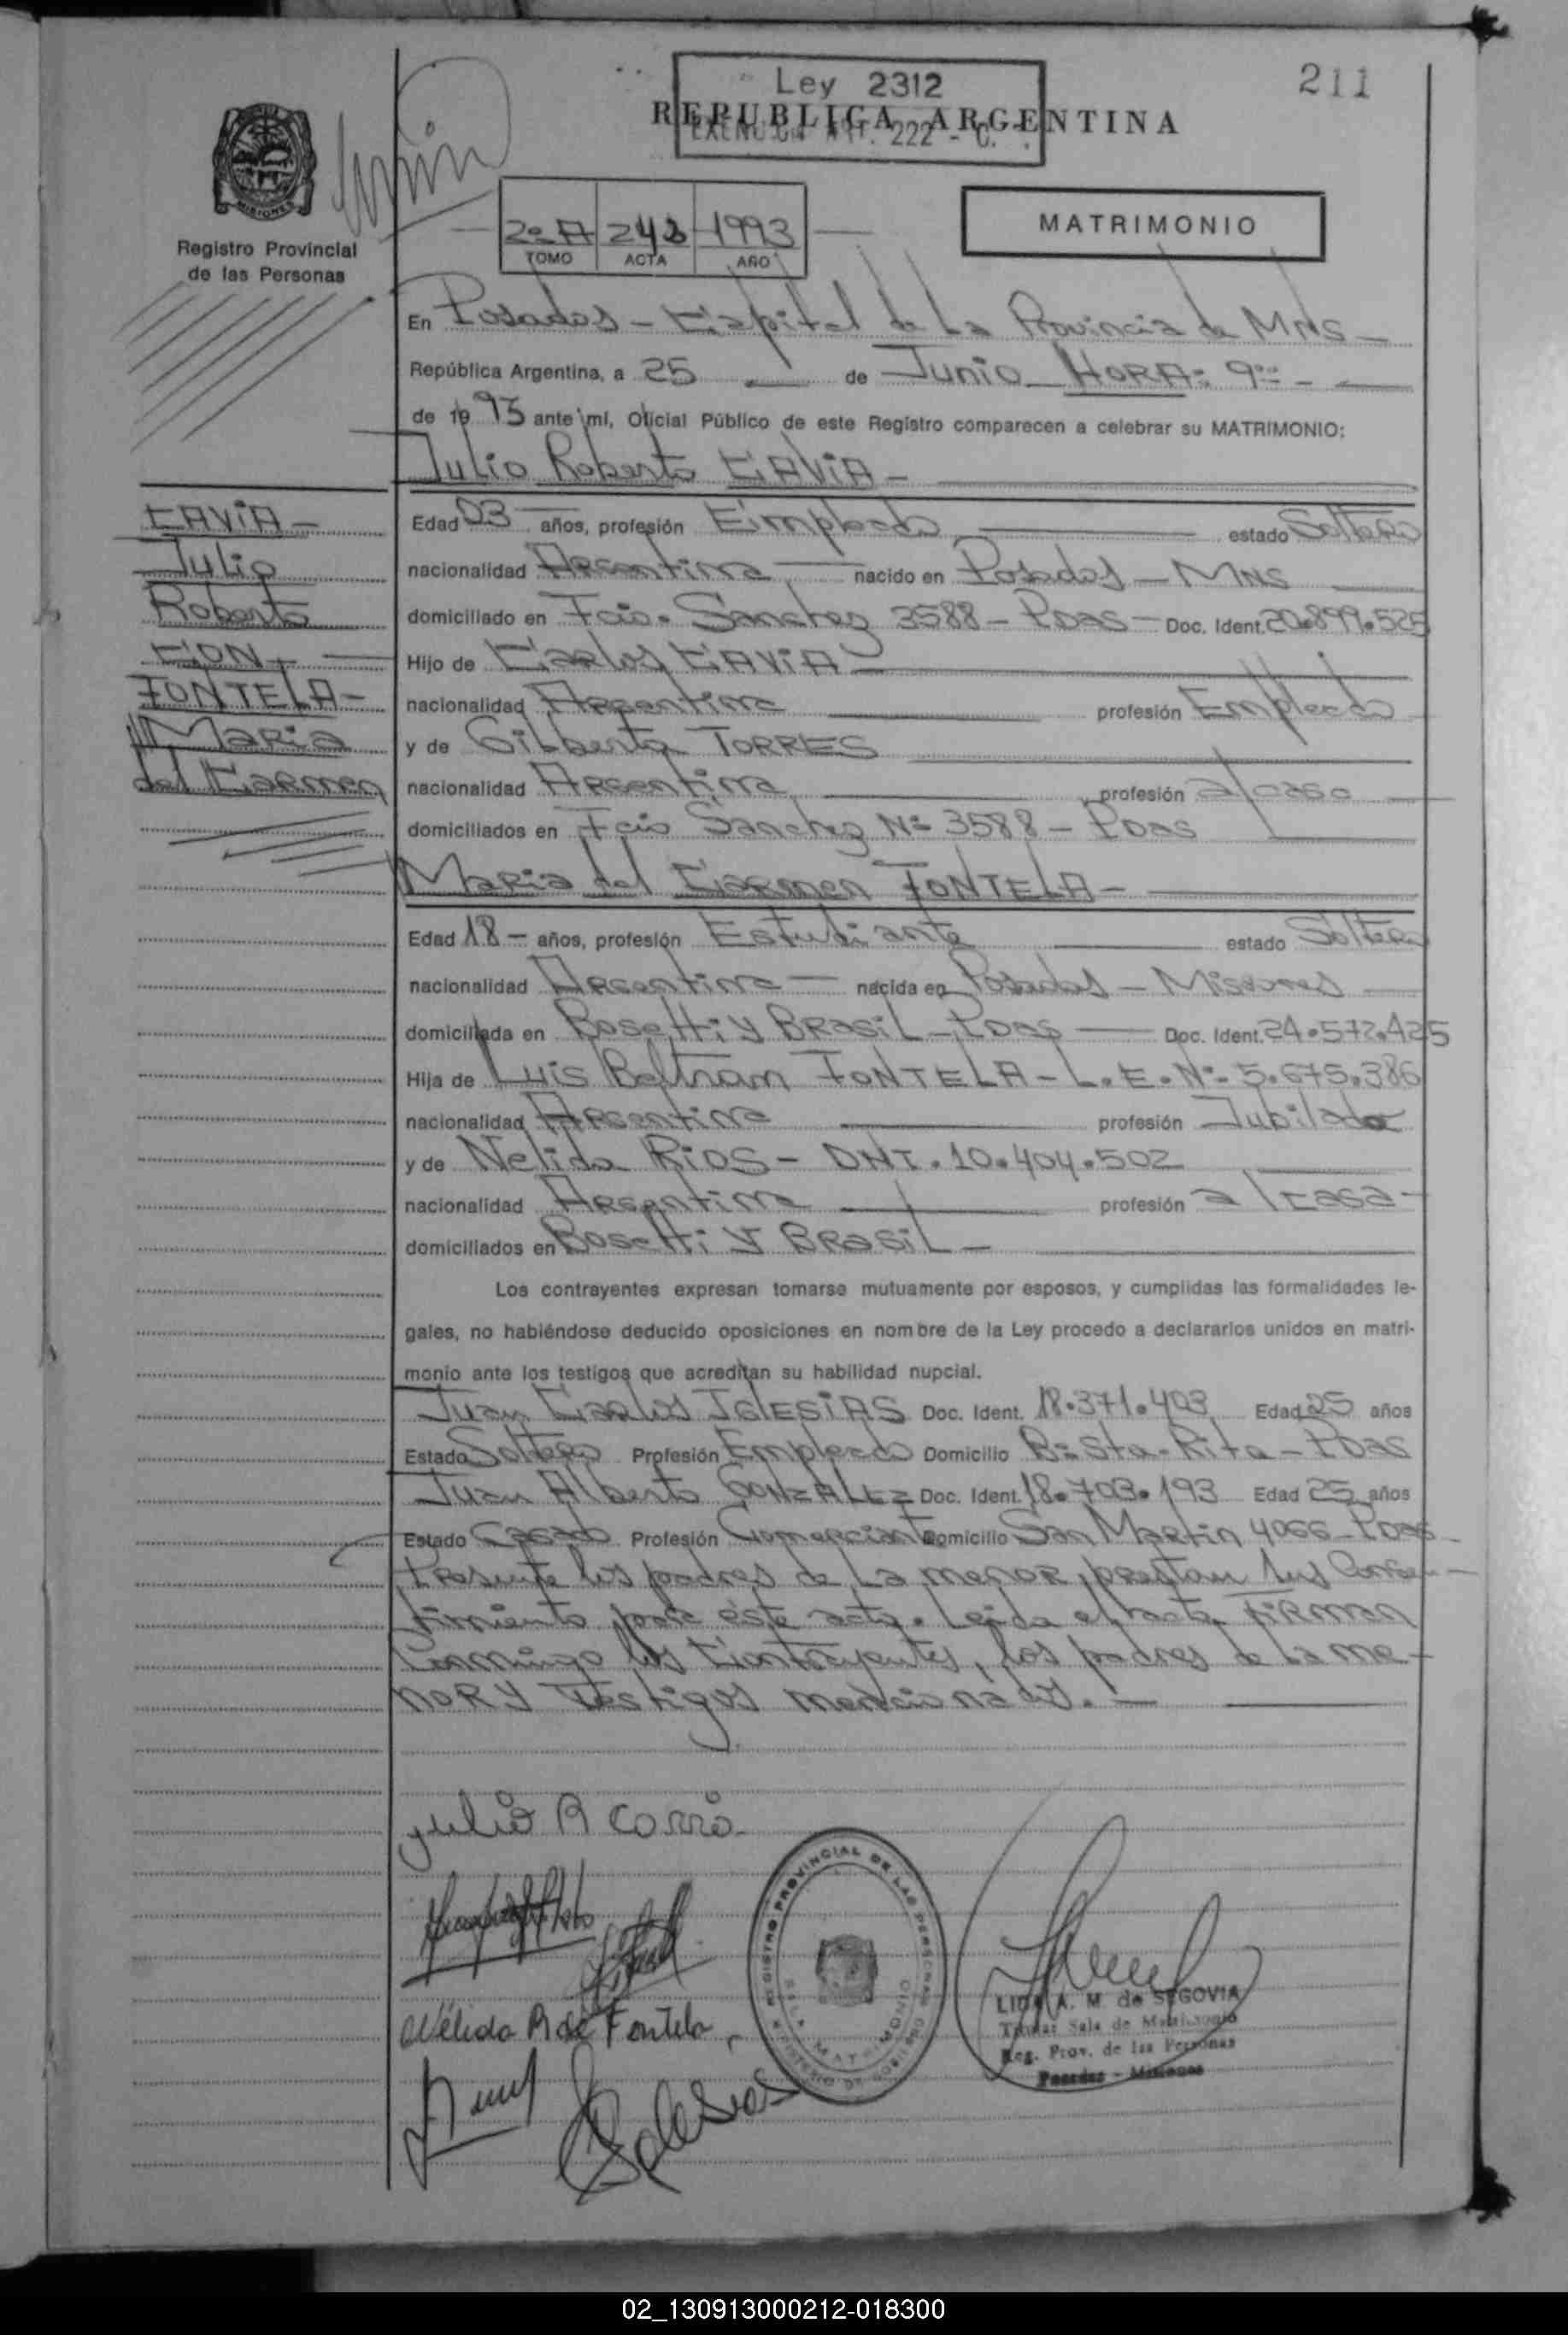 211
Ley 2312
REPUBLICA ARGENTINA
ART. 222 - C.
MISIONES
Registro Provincial
de las Personas
2º A 243 1993
TOMO ACTA AÑO
MATRIMONIO
En Posadas - Capital de La Provincia de Mns -
República Argentina, a 25 de Junio HORA: 9 -
de 1993 ante mí, Oficial Público de este Registro comparecen a celebrar su MATRIMONIO:
Julio Roberto CAVIA -
CAVIA -
Julio
Roberto
CON
FONTELA -
Maria
del Carmen
Edad 03 años, profesión Empleado estado Soltero
nacionalidad Argentina nacido en Posadas - Mns
domiciliado en Fcio. Sanchez 3588 - Pdas - Doc. Ident. 20.899.525
Hijo de Carlos CAVIA
nacionalidad Argentina profesión Empleado
y de Gilberta TORRES
nacionalidad Argentina profesión a/casa
domiciliados en Fcio Sanchez Nº 3588 - Pdas
Maria del Carmen FONTELA -
Edad 18 - años, profesión Estudiante estado Soltera
nacionalidad Argentina nacida en Posadas - Misiones
domiciliada en Bosetti y Brasil - Pdas Doc. Ident. 24.572.425
Hija de Luis Beltram FONTELA - L.E.Nº 5.675.386
nacionalidad Argentina profesión Jubilado
y de Nelida RIOS - DNI. 10.404.502
nacionalidad Argentina profesión a/casa -
domiciliados en Bosetti y Brasil -
Los contrayentes expresan tomarse mutuamente por esposos, y cumplidas las formalidades le-
gales, no habiéndose deducido oposiciones en nombre de la Ley procedo a declararlos unidos en matri-
monio ante los testigos que acreditan su habilidad nupcial.
Juan Carlos IGLESIAS Doc. Ident. 18.371.403 Edad 25 años
Estado Soltero Profesión Empleado Domicilio Bº Sta. Rita - Pdas
Juan Alberto GONZALEZ Doc. Ident. 18.703.193 Edad 25 años
Estado Casado Profesión Comerciante Domicilio San Martin 4066 - Pdas -
Presente los padres de La menor, prestan sus Consen-
timiento para éste acto. Leida el acta FIRMAN
Conmigo los Contrayentes, los padres de La me-
nor y Testigos mencionados. -
Julio R
Nélida R de Fontela
Iglesias
REGISTRO PROVINCIAL DE LAS PERSONAS
SALA MATRIMONIO
MINISTERIO DE GOBIERNO
LIDIA A. M. de SEGOVIA
Titular Sala de Matrimonio
Reg. Prov. de las Personas
Posadas - Misiones
02_130913000212-018300